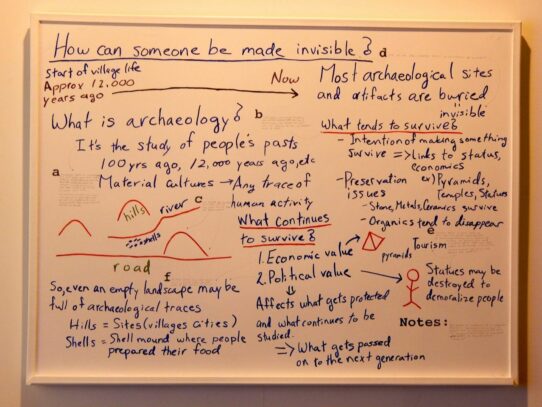 How can someone be made invisible?
d
Start of village life
Approx 12,000
years ago
Now
What is archaeology?
b
It's the study of people's pasts
100 yrs ago, 12,000 years ago, etc
a
Material cultures → Any trace of
human activity
hills
river
c
shells
road
f
So, even an empty landscape may be
full of archaeological traces
Hills = Sites (villages cities)
Shells = Shell mound where people
prepared their food
What continues
to survive?
1. Economic value
2. Political value
pyramids
Tourism
Statues may be
destroyed to
demoralize people
Affects what gets protected
and what continues to be
studied
=> What gets passed
on to the next generation
Most archaeological sites
and artifacts are buried
invisible
What tends to survive?
- Intention of making something
survive => Links to status,
economics
- Preservation ex) Pyramids,
issues Temples, Statues
- Stone, Metals, Ceramics survive
- Organics tend to disappear
e
Notes: